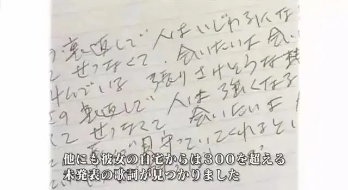 裏返しで 人はいじわるにな
せつなくて 会いたいよ 会い
でいる 張りさけそうな
の裏返しで 人は強くなる
せつなくて 会いたいよ
見守っていてくれると
他にも彼女の自宅からは300を超える
未発表の歌詞が見つかりました